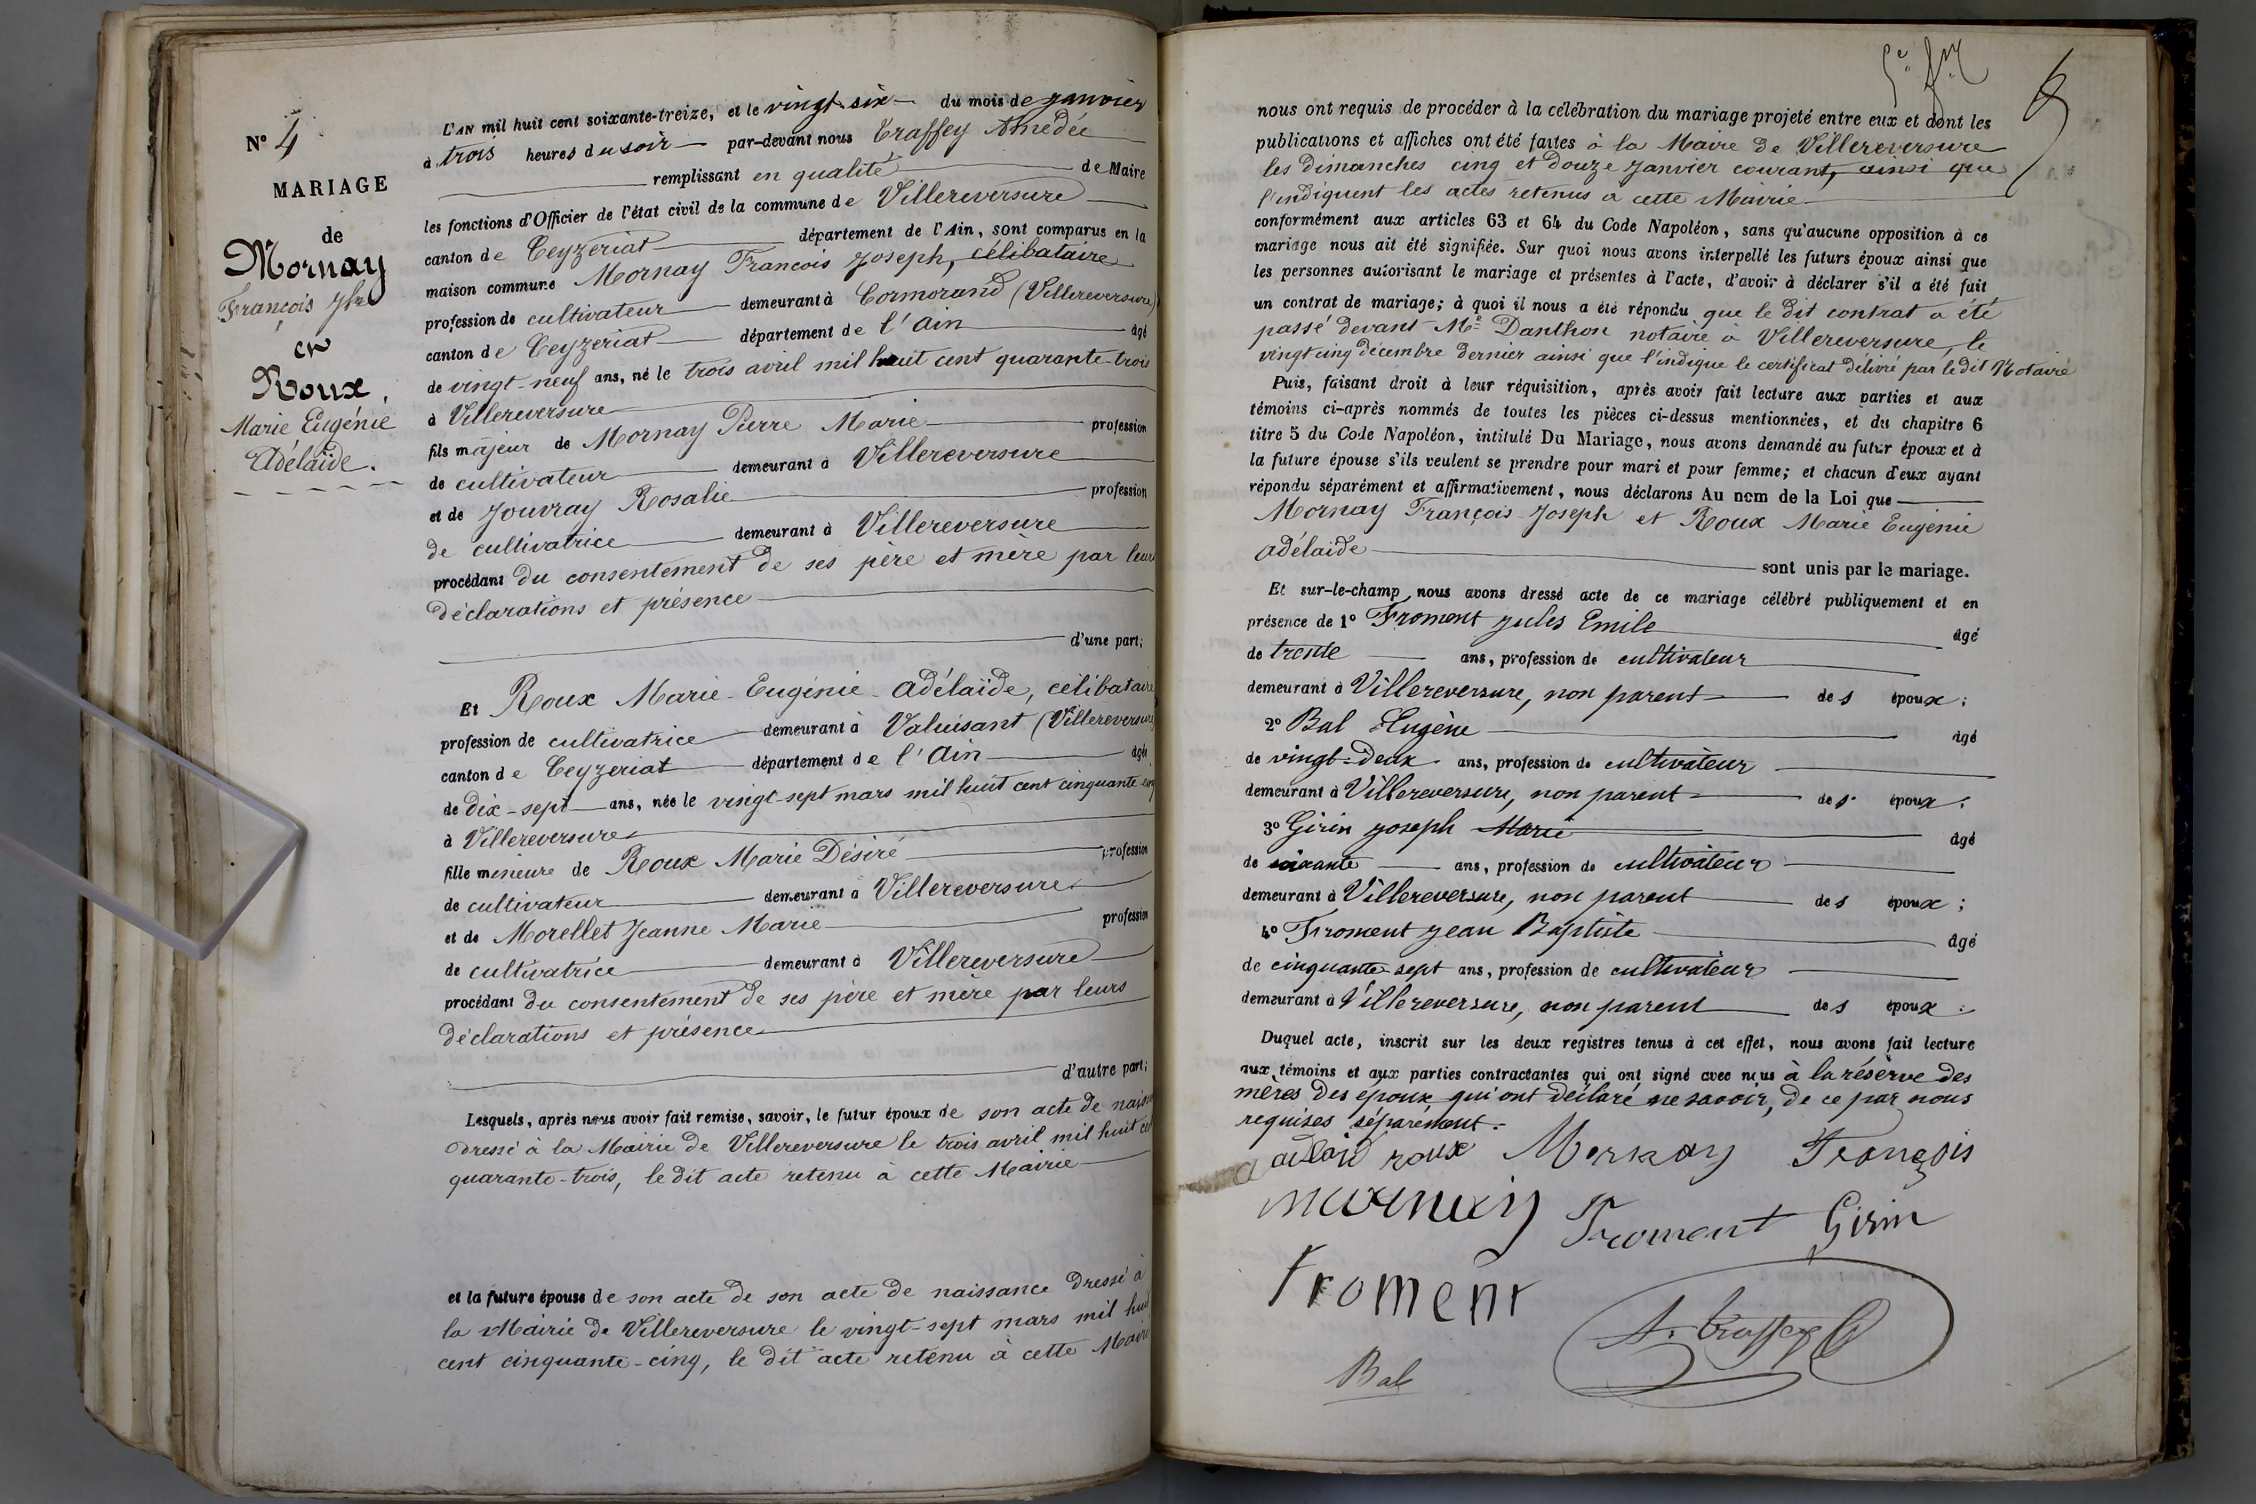 N° 4
MARIAGE
de
Mornay
François Jh
et
Roux
Marie Eugénie
Adélaïde.
L'AN mil huit cent soixante-treize, et le vingt-six du mois de janvier
à trois heures du soir par-devant nous Traffey Amédée
remplissant en qualité de Maire
les fonctions d'Officier de l'état civil de la commune de Villereversure
canton de Ceyzeriat département de l'Ain, sont comparus en la
maison commune Mornay Francois Joseph, célibataire
profession de cultivateur demeurant à Cormorand (Villereversure)
canton de Ceyzeriat département de l'Ain âgé
de vingt-neuf ans, né le trois avril mil huit cent quarante-trois
à Villereversure
fils majeur de Mornay Pierre Marie profession
de cultivateur demeurant à Villereversure
et de Jouvray Rosalie profession
de cultivatrice demeurant à Villereversure
procédant du consentement de ses père et mère par leurs
déclarations et présence
d'une part;
Et Roux Marie-Eugénie-Adélaïde, célibataire
profession de cultivatrice demeurant à Valuisant (Villereversure)
canton de Ceyzeriat département de l'Ain âgée
de dix-sept ans, née le vingt-sept mars mil huit cent cinquante-cinq
à Villereversure
fille mineure de Roux Marie Désiré profession
de cultivateur demeurant à Villereversure
et de Morellet Jeanne Marie profession
de cultivatrice demeurant à Villereversure
procédant du consentement de ses père et mère par leurs
déclarations et présence
d'autre part;
Lesquels, après nous avoir fait remise, savoir, le futur époux de son acte de naiss
dressé à la Mairie de Villereversure le trois avril mil huit ce
quarante-trois, le dit acte retenu à cette Mairie
et la future épouse de son acte de son acte de naissance dressé à
la Mairie de Villereversure le vingt-sept mars mil huit
cent cinquante-cinq, le dit acte retenu à cette Mairie
nous ont requis de procéder à la célébration du mariage projeté entre eux et dont les
publications et affiches ont été faites à la Mairie de Villereversure
les dimanches cinq et douze Janvier courant, ainsi que
l'indiquent les actes retenus à cette Mairie
conformément aux articles 63 et 64 du Code Napoléon, sans qu'aucune opposition à ce
mariage nous ait été signifiée. Sur quoi nous avons interpellé les futurs époux ainsi que
les personnes autorisant le mariage et présentes à l'acte, d'avoir à déclarer s'il a été fait
un contrat de mariage; à quoi il nous a été répondu que le dit contrat a été
passé devant Me Danthon notaire à Villereversure, le
vingt cinq décembre dernier ainsi que l'indique le certificat délivré par le dit Notaire
Puis, faisant droit à leur réquisition, après avoir fait lecture aux parties et aux
témoins ci-après nommés de toutes les pièces ci-dessus mentionnées, et du chapitre 6
titre 5 du Code Napoléon, intitulé Du Mariage, nous avons demandé au futur époux et à
la future épouse s'ils veulent se prendre pour mari et pour femme; et chacun d'eux ayant
répondu séparément et affirmativement, nous déclarons Au nom de la Loi que
Mornay François-Joseph et Roux Marie Eugénie
adélaide
sont unis par le mariage.
Et sur-le-champ nous avons dressé acte de ce mariage célébré publiquement et en
présence de 1° Froment Jules Emile âgé
de trente ans, profession de cultivateur
demeurant à Villereversure, non parent des époux;
2° Bal Eugène âgé
de vingt-deux ans, profession de cultivateur
demeurant à Villereversure, non parent des époux;
3° Girin Joseph Marie âgé
de soixante ans, profession de cultivateur
demeurant à Villereversure, non parent des époux;
4° Froment Jean Baptiste âgé
de cinquante-sept ans, profession de cultivateur
demeurant à Villereversure, non parent des époux.
Duquel acte, inscrit sur les deux registres tenus à cet effet, nous avons fait lecture
aux témoins et aux parties contractantes qui ont signé avec nous à la réserve des
mères des époux qui ont déclaré ne savoir, de ce par nous
requises séparément.
roux Mornay François
mornay Froment Girin
Froment
A. Traffey
Bal